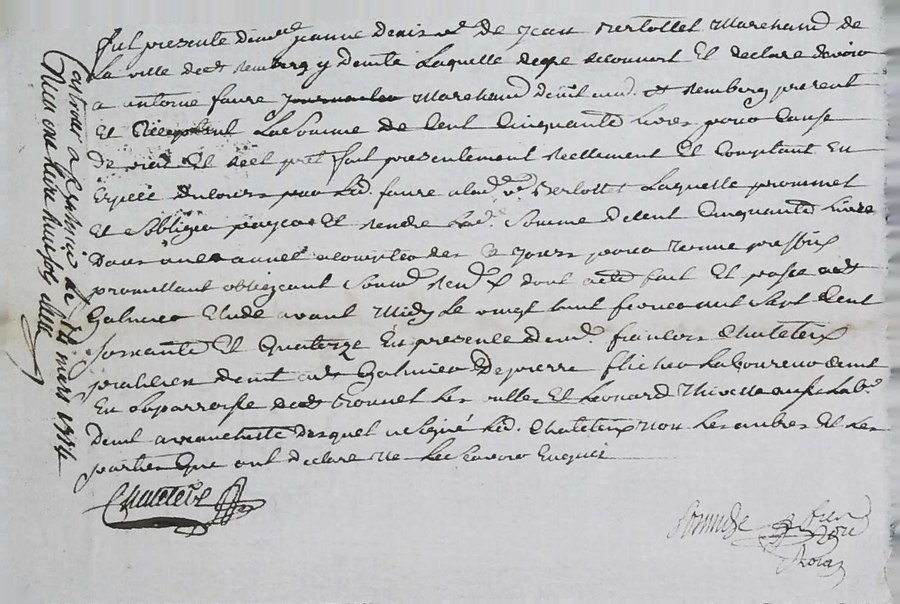 fut presente dem.lle jeanne denis v.e de jean Bertollet Marchand de
la ville de st Rembert y demte Laquelle de gre Reconnoit Et declare devoir
a antoine faure Marchand demt aud. st Rembert present
Et acceptant La Somme de Cent Cinquante Livres pour Cause
de vray Et Reel pret fait presentement Reellement Et Comptant En
Espece par Led. faure a lad. v.e Bertollet Laquelle prommet
Et Soblige payer Et Rendre Lad. Somme de Cent Cinquante Livres
Dans une année a compter de ce Jours pour terme prefix
promettant obligeant Soum. Ren. dont acte fait Et passé a st
Galmier Etude avant Midy Le vingt huit fevrier mil Sept Cent
Soixante Et Quatorze En presence de m.e francois Chateteix
praticien demt a st Galmier De pierre flicher Laboureur demt
En la parroisse de st bonnet Les oulles Et Leonard
demt a Desquel a Signé Led. Chateteix Non Les autres Et Les
parties Qui ont declaré Ne Le Scavoir Enquis
Chateteix
Controllé a St galmier le mars 1774
Reçu une livre huit sols